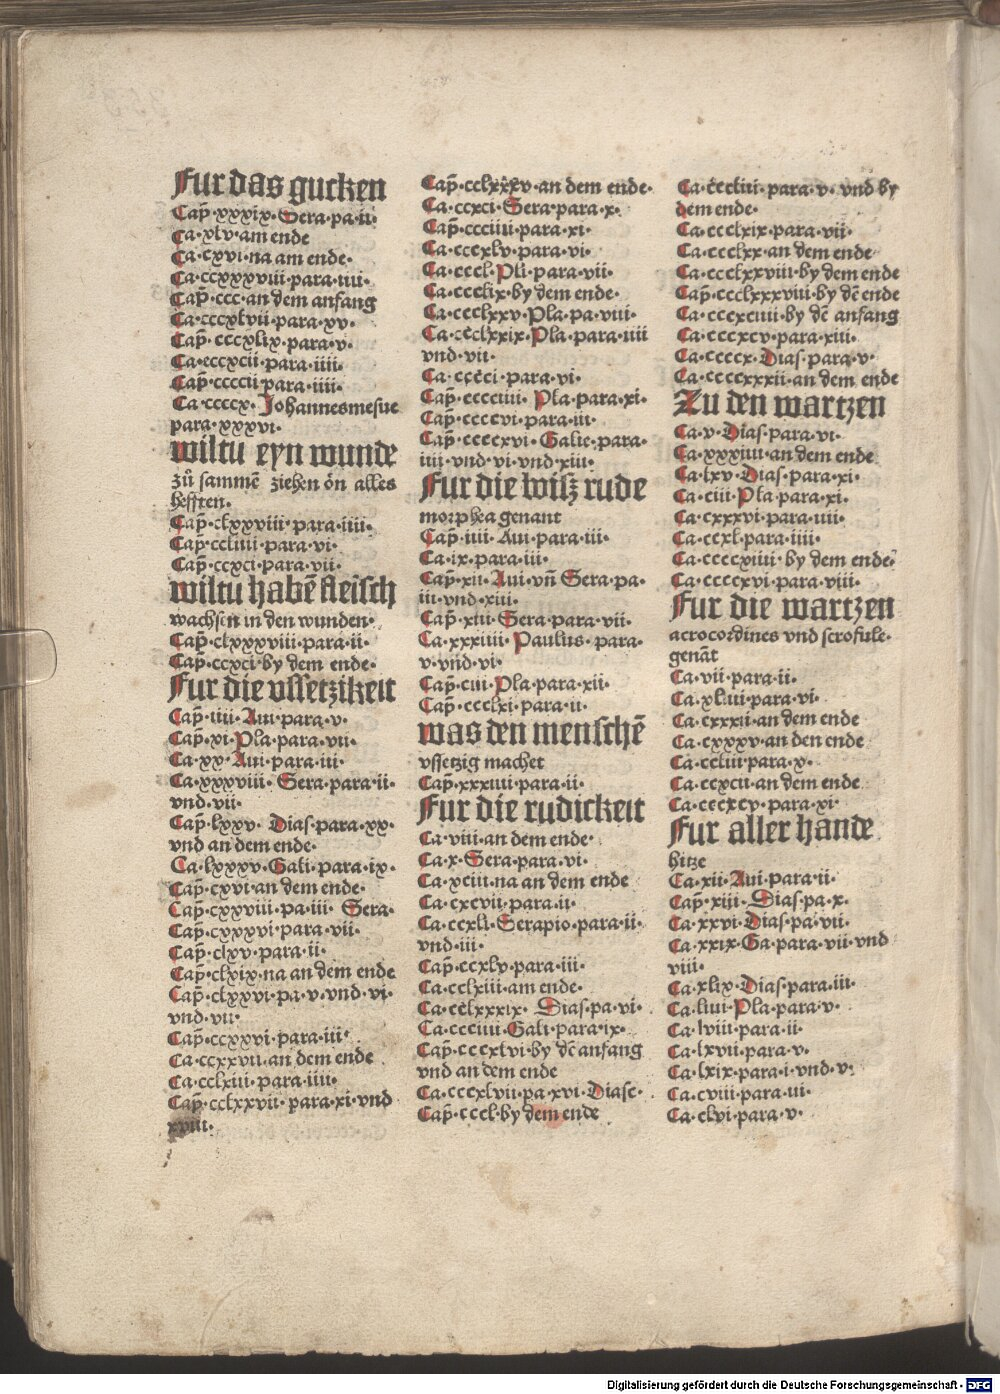 Fur das gucken
Cap̃·xxxix·Sera·pa·ii·
Ca·xlv·am ende
Ca·cxvi·na am ende·
Ca·ccxxxviii·para·iiii·
Cap̃·ccc·an dem anfang
Ca·cccxlvii·para·xv·
Cap̃·cccxlix·para·v·
Ca·cccxcii·para·iiii·
Cap̃·ccccii·para·iiii·
Ca·ccccx·Johannesmesue
para·xxxvi·
wiltu eyn wunde
zů sammē ziehen ōn alles
hefften·
Cap̃·clxxviii·para·iiii·
Cap̃·ccliiii·para·vi·
Cap̃·ccxci·para·vii·
wiltu habē fleisch
wachsen in den wunden·
Cap̃·clxxxviii·para·ii·
Cap̃·ccxci·by dem ende·
Fur die vssetzikeit
Cap̃·iiii·Aui·para·v·
Cap̃·xi·Pla·para·vii·
Ca·xx·Aui·para·iii·
Ca·xxxviii·Sera·para·ii·
vnd·vii·
Cap̃·lxxv·Dias·para·xx·
vnd an dem ende·
Ca·lxxxv·Gali·para·ix·
Cap̃·cxvi·an dem ende·
Cap̃·cxxviii·pa·iii·Sera·
Cap̃·cxxxvi·para·vii·
Cap̃·clxv·para·ii·
Cap̃·clxix·na an dem ende
Cap̃·clxxvi·pa·v·vnd·vi·
vnd·vii·
Cap̃·ccxxvi·para·iii·
Ca·ccxxvii·an dem ende
Ca·cclxiii·para·iiii·
Cap̃·cclxxvii·para·xi·vnd
xviii·
Cap̃·cclxxxv·an dem ende·
Ca·ccxci·Sera·para·x·
Cap̃·ccciiii·para·xi·
Ca·cccxlv·para·vi·
Ca·cccl·Pli·para·vii·
Ca·ccclix·by dem ende·
Ca·ccclxxv·Pla·pa·viii·
Ca·ccclxxix·Pla·para·iiii
vnd·vii·
Ca·cccci·para·vi·
Cap̃·cccciiii·Pla·para·xi·
Cap̃·ccccvi·para·iii·
Cap̃·ccccxvi·Galie·para·
iiii·vnd·vi·vnd·xiii·
Fur die wisz rude
morphea genant
Cap̃·iiii·Aui·para·iii·
Ca·ix·para·iii·
Cap̃·xii·Aui·vñ Sera·pa·
iii·vnd·xiii·
Cap̃·xiii·Sera·para·vii·
Ca·xxxiiii·Paulus·para·
v·vnd·vi·
Cap̃·ciii·Pla·para·xii·
Cap̃·ccclxi·para·ii·
was den menschē
vssetzig machet
Cap̃·xxxiiii·para·ii·
Fur die rudickeit
Ca·viii·an dem ende·
Ca·x·Sera·para·vi·
Ca·xciii·na an dem ende
Ca·cxcvii·para·ii·
Ca·ccxli·Serapio·para·ii·
vnd·iii·
Cap̃·ccxlv·para·iii·
Ca·cclxiii·am ende·
Ca·cclxxxix·Dias·pa·vi·
Ca·ccciiii·Gali·para·ix·
Cap̃·cccxlvi·by dē anfang
vnd an dem ende
Ca·cccxlvii·pa·xvi·Diasc·
Cap̃·cccl·by dem ende
Ca·cccliii·para·v·vnd by
dem ende·
Ca·ccclxix·para·vii·
Ca·ccclxx·an dem ende·
Ca·ccclxxviii·by dem ende
Cap̃·ccclxxxviii·by dē ende
Ca·cccxciiii·by dē anfang
Ca·cccxcv·para·xiii·
Ca·ccccx·Dias·para·v·
Ca·ccccxxxii·an dem ende
Zu den wartzen
Ca·v·Dias·para·vi·
Ca·xxxiiii·an dem ende
Ca·lxv·Dias·para·xi·
Ca·ciii·Pla·para·xi·
Ca·cxxxvi·para·iiii·
Ca·ccxl·para·iiii·
Ca·ccccxiiii·by dem ende·
Ca·ccccxvi·para·viii·
Fur die wartzen
acrocordines vnd scrofule·
genāt
Ca·vii·para·ii·
Ca·xliiii·para·vi·
Ca·cxxxii·an dem ende
Ca·cxxxv·an den ende
Ca·ccliii·para·x·
Ca·ccxcii·an dem ende
Ca·cccxcv·para·xi·
Fur aller hande
hitze
Ca·xii·Aui·para·ii·
Cap̃·xiii·Dias·pa·x·
Ca·xxvi·Dias·pa·vii·
Ca·xxix·Ga·para·vii·vnd
viii·
Ca·xlix·Dias·para·iii·
Ca·liiii·Pla·para·v·
Ca·lviii·para·ii·
Ca·lxvii·para·v·
Ca·lxix·para·i·vnd·v·
Ca·cviii·para·iii·
Ca·clvi·para·v·
Digitalisierung gefördert durch die Deutsche Forschungsgemeinschaft - DFG